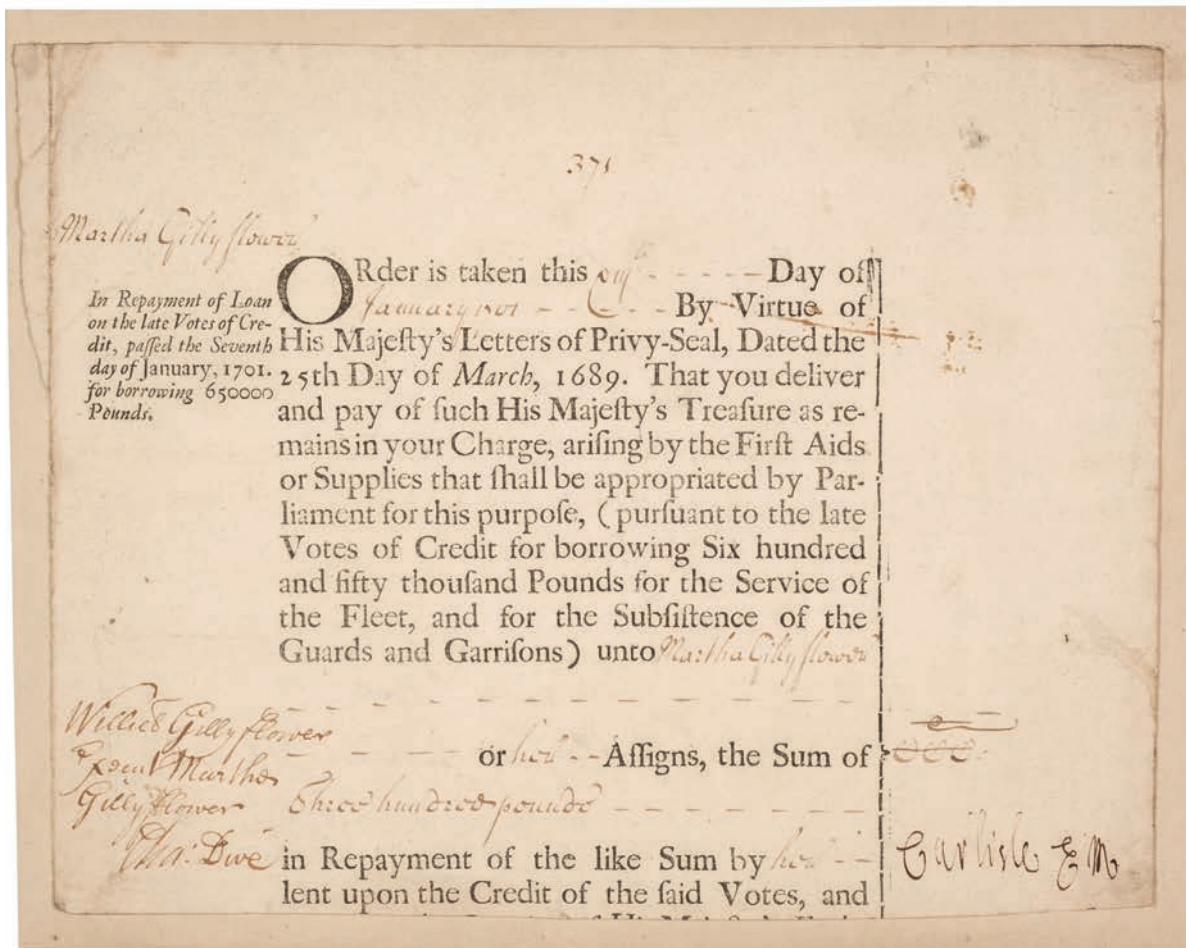 371
Martha Gillyflower
In Repayment of Loan
on the late Votes of Cre-
dit, paſſed the Seventh
day of January, 1701.
for borrowing 650000
Pounds.
ORder is taken this Day of
January 1701 By Virtue of
His Majeſty's Letters of Privy-Seal, Dated the
25th Day of March, 1689. That you deliver
and pay of ſuch His Majeſty's Treaſure as re-
mains in your Charge, ariſing by the Firſt Aids
or Supplies that ſhall be appropriated by Par-
liament for this purpoſe, (purſuant to the late
Votes of Credit for borrowing Six hundred
and fifty thouſand Pounds for the Service of
the Fleet, and for the Subſiſtence of the
Guards and Garriſons) unto Martha Gillyflower
Gillyflower
or her -- Aſſigns, the Sum of
Martha
Gillyflower
Three hundred pounds
Cha: Dive
in Repayment of the like Sum by her --
lent upon the Credit of the ſaid Votes, and
Carlisle E M